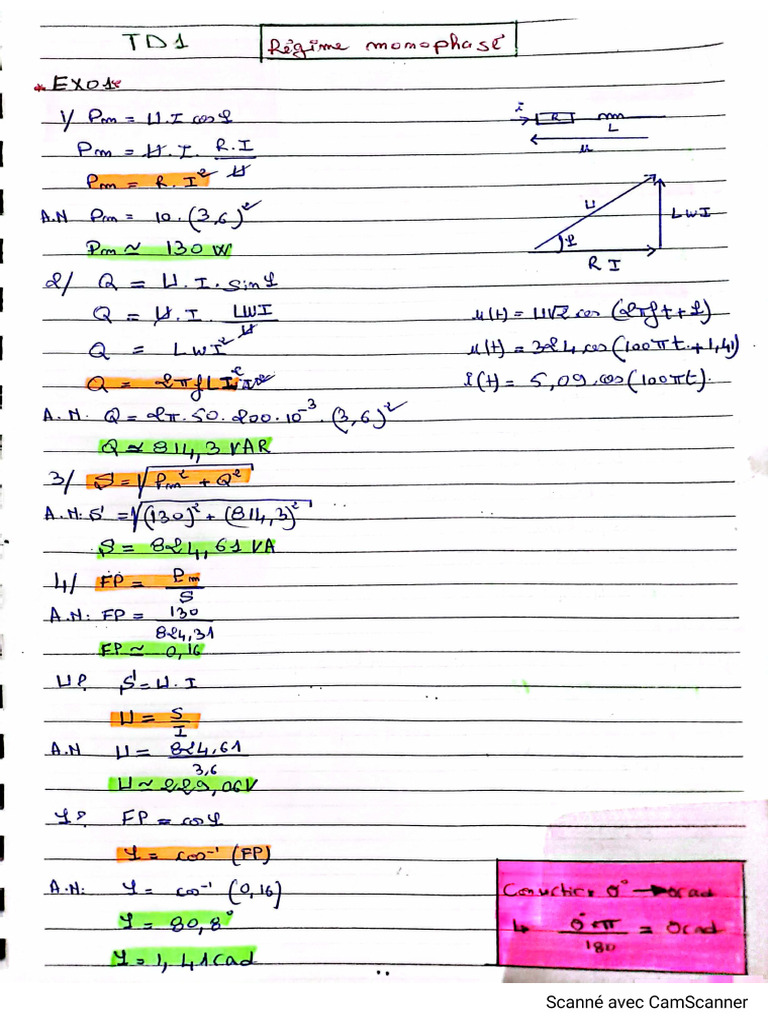 TD1
Régime monophasé
* EXO1:
1/ Pm = U.I cosφ
Pm = U.I. R.I / U
Pm = R.I²
A.N Pm = 10.(3,6)²
Pm ≃ 130 W
2/ Q = U.I.sinφ
Q = U.I. LWI / U
Q = LWI²
Q = 2πfLI²
A.N: Q = 2π.50.200.10⁻³.(3,6)²
Q ≃ 814,3 VAR
3/ S = √(Pm² + Q²)
A.N: S = √((130)² + (814,3)²)
S = 824,61 VA
4/ FP = Pm / S
A.N: FP = 130 / 824,31
FP ≃ 0,16
U? S = U.I
U = S / I
A.N U = 824,61 / 3,6
U ≃ 229,06V
φ? FP = cosφ
φ = cos⁻¹ (FP)
A.N: φ = cos⁻¹ (0,16)
φ = 80,8°
φ = 1,41rad
i
R
L
u
U
LWI
φ
RI
u(t) = U√2 cos (2πft + φ)
u(t) = 324 cos(100πt + 1,41)
i(t) = 5,09.cos(100πt).
θ° → rad
↳ θ°*π / 180 = θrad
Scanné avec CamScanner